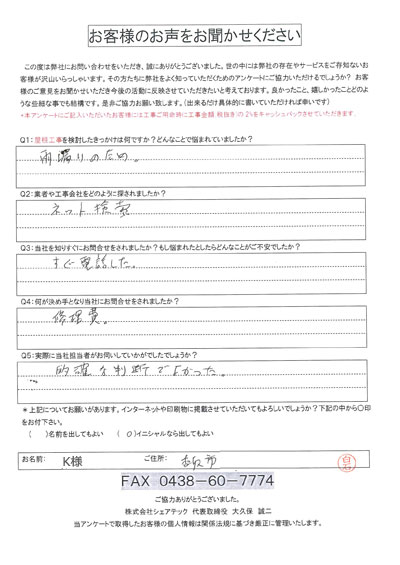 お客様のお声をお聞かせください
この度は弊社にお問い合わせをいただき、誠にありがとうございます。世の中には弊社の存在やサービスをご存知ないお
客様が沢山いらっしゃいます。その方たちに弊社をよく知っていただくためのアンケートにご協力いただけるでしょうか？ お客
様のご意見をお聞かせいただき今後の活動に反映させていただきたいと考えております。良かったこと、嬉しかったことどのよ
うな些細な事でも結構です。是非ご協力お願い致します。（出来るだけ具体的に書いていただければ幸いです）
*本アンケートにご記入いただいたお客様には工事ご用命時に工事金額 税抜き）の2％をキャッシュバックさせていただきます.
Q1：屋根工事を検討したきっかけは何ですか？どんなことで悩まれていましたか？
雨漏りのため。
Q2：業者や工事会社をどのように探されましたか？
ネット検索
Q3：当社を知りすぐにお問合せをされましたか？もし悩まれたとしたらどんなことがご不安でしたか？
すぐ電話した。
Q4：何が決め手となり当社にお問合せをされましたか？
修理費。
Q5：実際に当社担当者がお伺いしていかがでしたでしょうか？
的確な判断でよかった。
＊上記についてお願いがあります。インターネットや印刷物に掲載させていただいてもよろしいでしょうか？下記の中から〇印
をお付下さい。
（　　）名前を出してもよい　（ ○ ）イニシャルなら出してもよい
お名前： K様 ご住所： 香取市
FAX 0438-60-7774
ご協力ありがとうございました。
株式会社シェアテック 代表取締役 大久保 誠二
当アンケートで取得したお客様の個人情報は関係法規に基づき厳正に管理いたします。